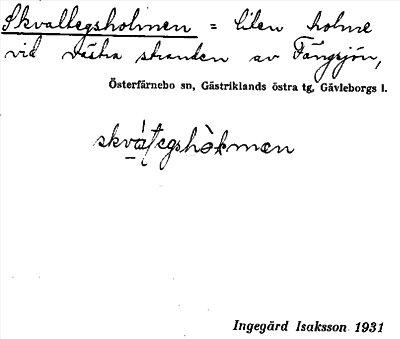 Skvaltegsholmen = liten holme
vid västra stranden av Fängsjön,
Österfärnebo sn, Gästriklands östra tg, Gävleborgs l.
skvàļtegshòļmen
Ingegärd Isaksson 1931